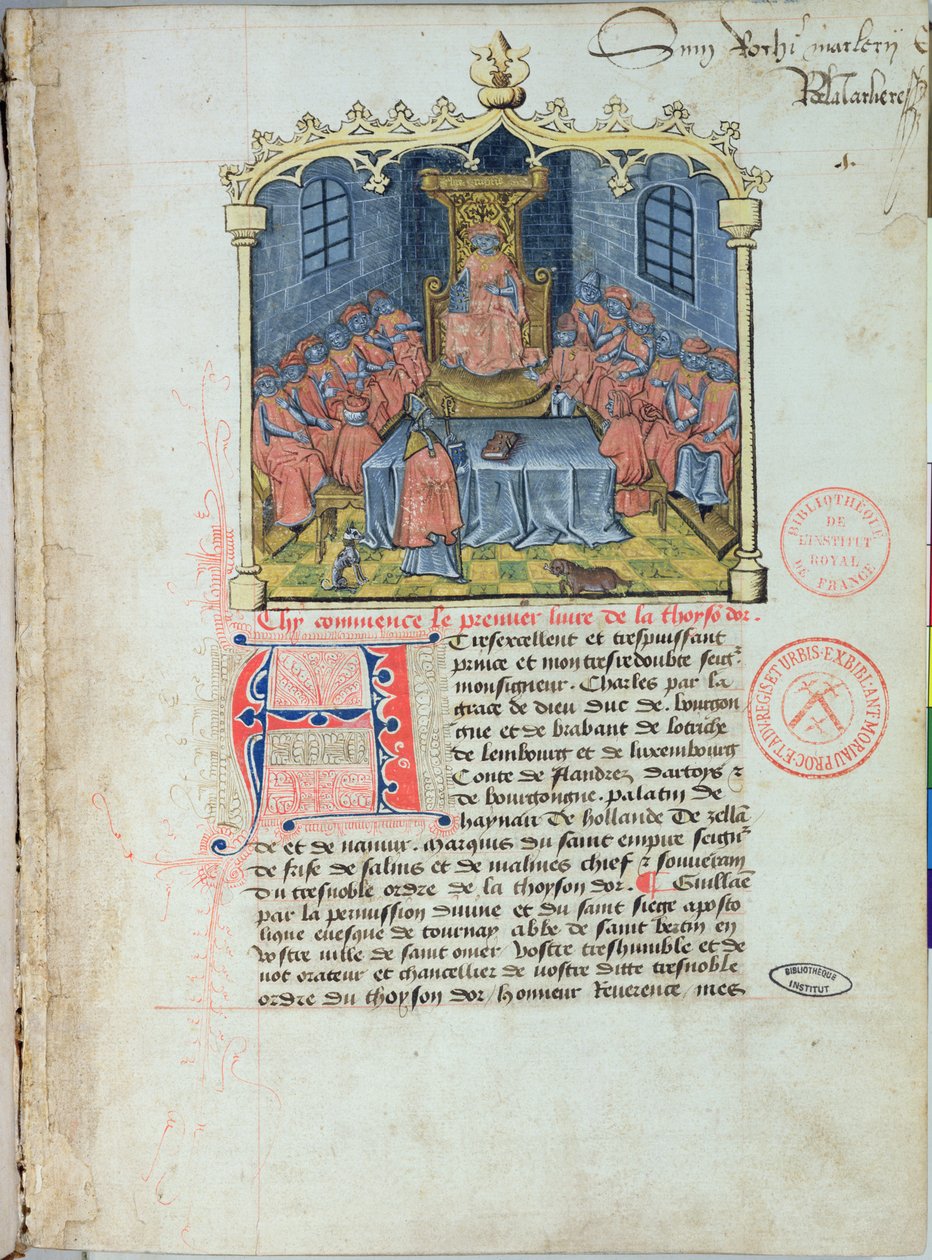 Chy commence le premier livre de la thoyso dor.
A Tresexcellent et trespuissant
prince et mon tresredoubte seigr.
monsigneur. Charles par la
grace de dieu duc de. bourgon
gne et de brabant de lotrich
de lembourg et de luxembourg
Conte de flandrez dartoys z
de bourgongne. palatin de
haynau De hollande De zella
de et de namur. marquis du saint empire seignr
de frise de salins et de malines chief z souverain
du tresnoble ordre de la thoyson dor. Guillae
par la permission divine et du saint siege aposto
lique evesque de tournay abbe de saint bertin en
vostre ville de saint omer vostre treshumble et de
vot orateur et chancellier de vostre ditte tresnoble
ordre du thoyson dor / honneur Reverence / mes
1.
BIBLIOTHÈQUE
DE
L'INSTITUT
ROYAL
DE FRANCE
EX BIBL. ANT. MORIAU PROC. ET ADV. REGIS ET URBIS
BIBLIOTHÈQUE
INSTITUT